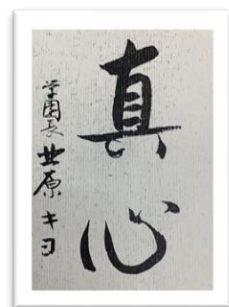 真心
学園長 北原キヨ